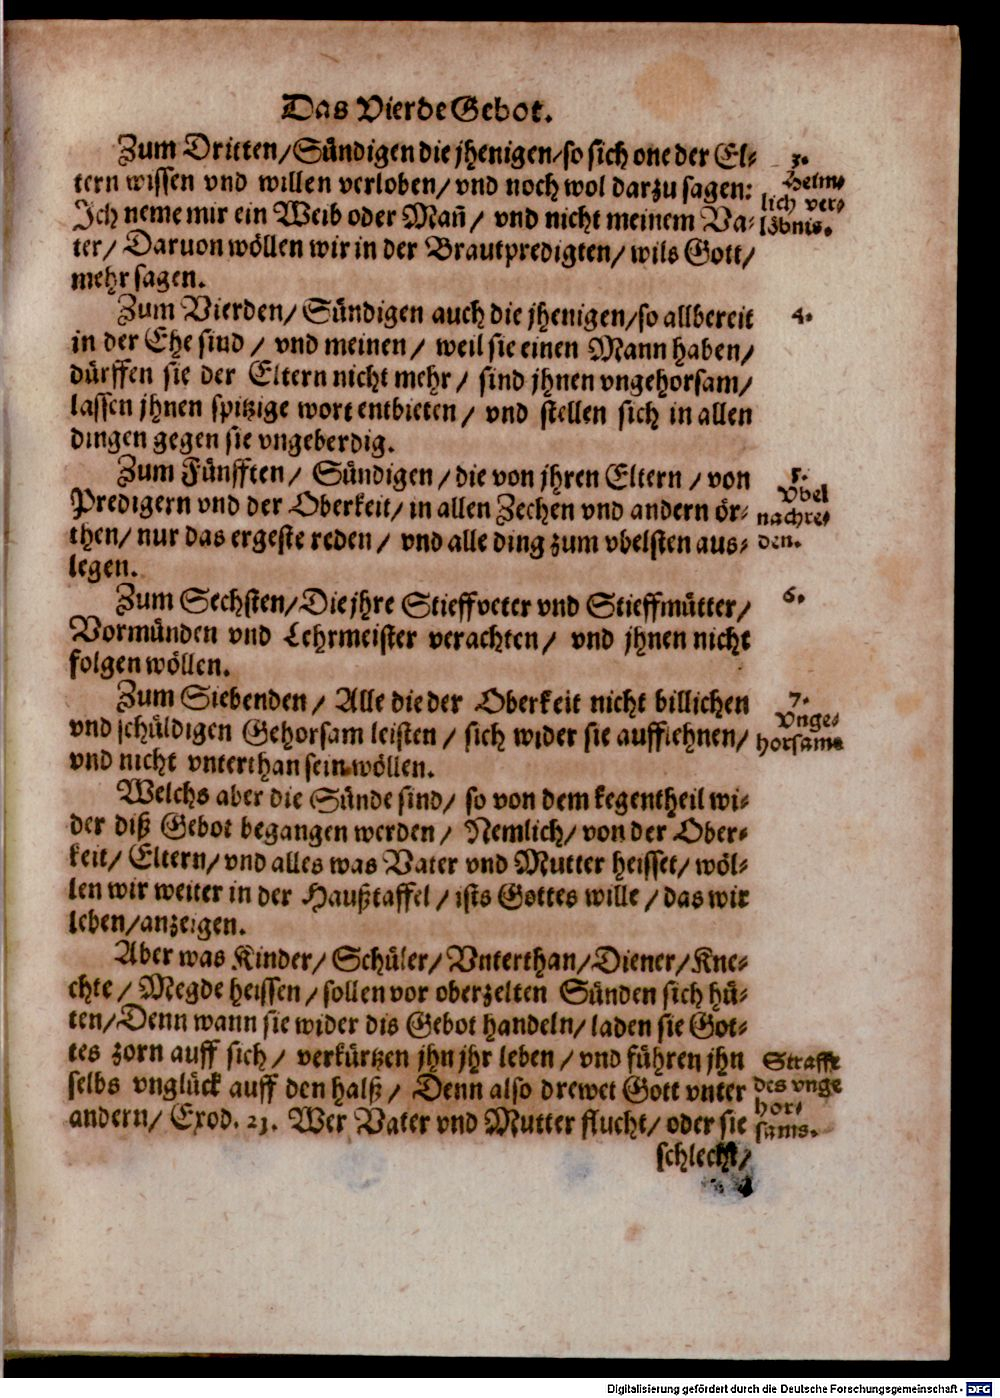 Das Vierde Gebot.
Zum Dritten/Sündigen die jhenigen/so sich one der El-
tern wissen vnd willen verloben/vnd noch wol darzu sagen:
Ich neme mir ein Weib oder Mañ/ vnd nicht meinem Va-
ter/ Daruon wöllen wir in der Brautpredigten/ wils Gott/
mehr sagen.
3.
Heim-
lich ver-
löbnis.
Zum Vierden/ Sündigen auch die jhenigen/so allbereit
in der Ehe sind / vnd meinen/ weil sie einen Mann haben/
dürffen sie der Eltern nicht mehr/ sind jhnen vngehorsam/
lassen jhnen spitzige wort entbieten/ vnd stellen sich in allen
dingen gegen sie vngeberdig.
4.
Zum Fünfften/ Sündigen/die von jhren Eltern / von
Predigern vnd der Oberkeit/ in allen Zechen vnd andern ör-
then/ nur das ergeste reden/ vnd alle ding zum vbelsten aus-
legen.
5.
Vbel
nachre-
den.
Zum Sechsten/Die jhre Stieffveter vnd Stieffmütter/
Vormünden vnd Lehrmeister verachten/ vnd jhnen nicht
folgen wöllen.
6.
Zum Siebenden/ Alle die der Oberkeit nicht billichen
vnd schüldigen Gehorsam leisten/ sich wider sie aufflehnen/
vnd nicht vnterthan sein wöllen.
7.
Vnge-
horsame
Welchs aber die Sünde sind/ so von dem kegentheil wi-
der diß Gebot begangen werden/ Nemlich/ von der Ober-
keit/ Eltern/vnd alles was Vater vnd Mutter heisset/ wöl-
len wir weiter in der Haußtaffel/ists Gottes wille/das wir
leben/anzeigen.
Aber was Kinder/ Schüler/ Vnterthan/Diener/Kne-
chte/ Megde heissen/sollen vor oberzelten Sünden sich hü-
ten/Denn wann sie wider dis Gebot handeln/laden sie Got-
tes zorn auff sich/ verkürtzen jhn jhr leben/vnd führen jhn
selbs vnglück auff den halß/ Denn also drewet Gott vnter
andern/ Exod. 21. Wer Vater vnd Mutter flucht/ oder sie
Straffe
des vnge
hor-
sams.
schlecht/
Digitalisierung gefördert durch die Deutsche Forschungsgemeinschaft - DFG